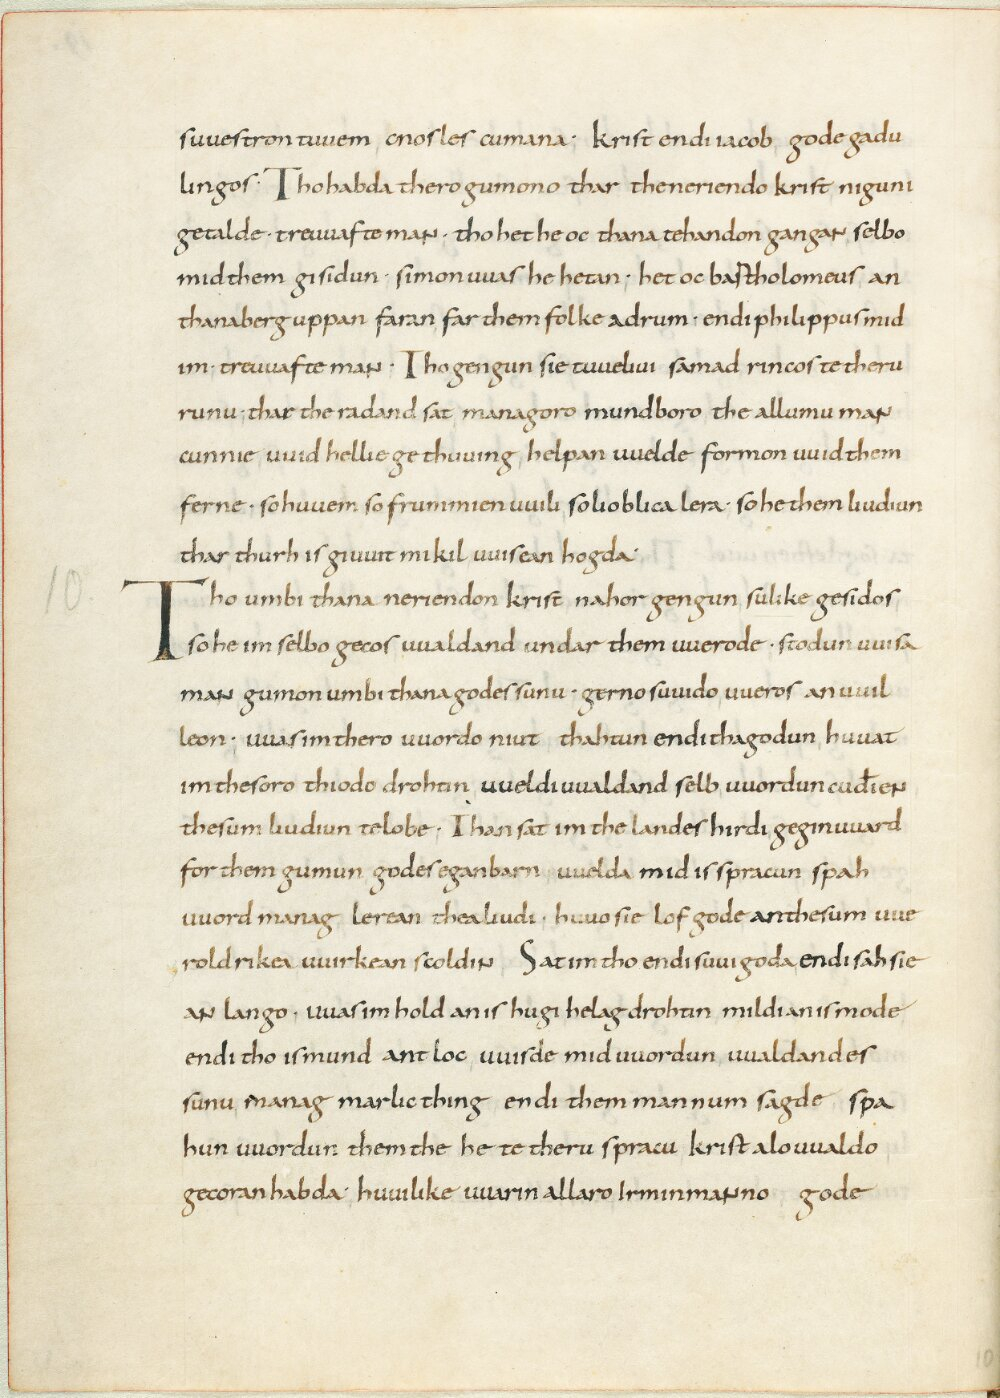 suuestron tuuem cnosles cumana· krist endi iacob gode gadu
lingos· Tho habda thero gumono thar the neriendo krist niguni
getalde· treuuafte man· tho het he oc thana tehandon gangan selbo
mid them gisidun· simon uuas he hetan· het oc bartholomeus an
thana berg uppan faran far them folke adrum· endi philippus mid
im· treuuafte man· Tho gengun sie tuueliui samad rincos te theru
runu· thar the radand sat managoro mundboro the allumu man
cunnie uuid hellie gethuuing helpan uuelde formon uuid them
ferne· so huuem so frummien uuili so lioblica lera· so he them liudiun
thar thurh is giuuit mikil uuisean hogda·
10
Tho umbi thana neriendon krist nahor gengun sulike gesidos
so he im selbo gecos uualdand undar them uuerode· stodun uuisa
man gumon umbi thana godes sunu· gerno suuido uueros an uuil
leon· uuas im thero uuordo niut thahtun endi thagodun huuat
im thesoro thiodo drohtin uueldi uualdand selb uuordun cuđien
thesum liudiun te lobe· Than sat im the landes hirdi geginuuard
for them gumun godes egan barn uuelda mid is spracun spah
uuord manag lerean thea liudi· huuo sie lof gode an thesum uue
roldrikea uuirkean scoldin Sat im tho endi suuigoda endi sah sie
an lango· uuas im hold an is hugi helag drohtin mildi an is mode
endi tho is mund antloc uuisde mid uuordun uualdandes
sunu manag marlic thing endi them mannum sagde spa
hun uuordun them the he te theru spracu krist alouualdo
gecoran habda· huuilike uuarin allaro Irminmanno gode
10